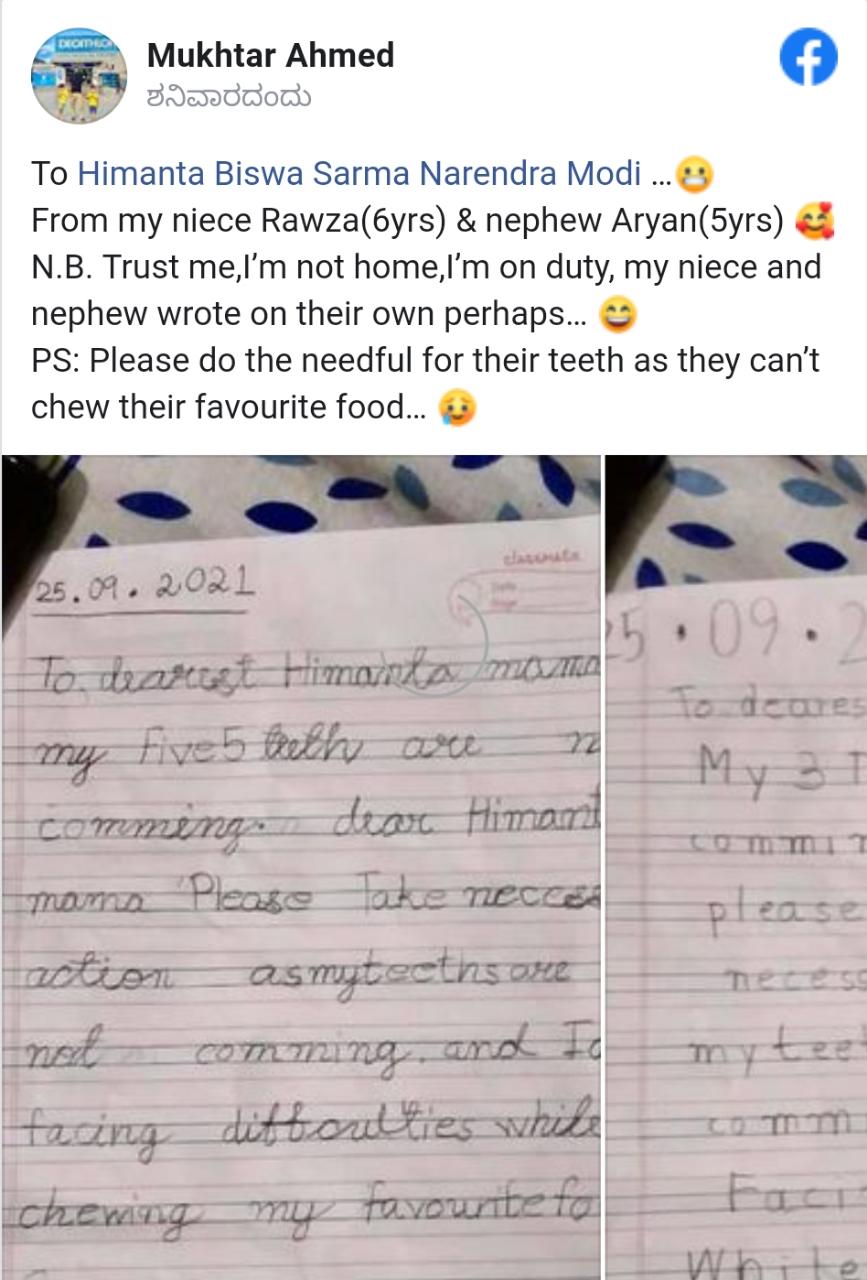 DECATHLON
Mukhtar Ahmed
ಶನಿವಾರದಂದು
To Himanta Biswa Sarma Narendra Modi ...😬
From my niece Rawza(6yrs) & nephew Aryan(5yrs) 🥰
N.B. Trust me,I'm not home,I'm on duty, my niece and
nephew wrote on their own perhaps... 😄
PS: Please do the needful for their teeth as they can't
chew their favourite food... 🥲
classmate
25.09.2021
To, dearest Himanta mama
my five5 teeth are n
comming. dear Himant
mama Please Take necces
action asmyteethsare
not comming. and I
facing difficulties while
chewing my favourite fo
25.09.2
To deares
My 3 T
commin
please
necess
my tee
comm
Faci
While